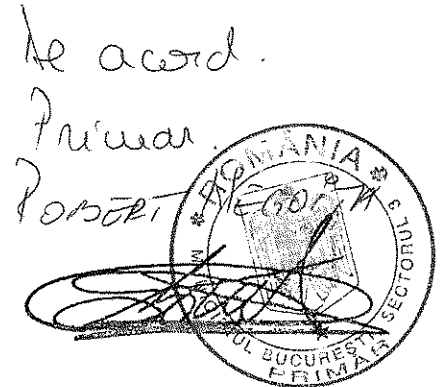 De acord.
Primar.
ROBERT NEGOIȚĂ
ROMÂNIA
MUNICIPIUL BUCUREȘTI SECTORUL 3
PRIMAR